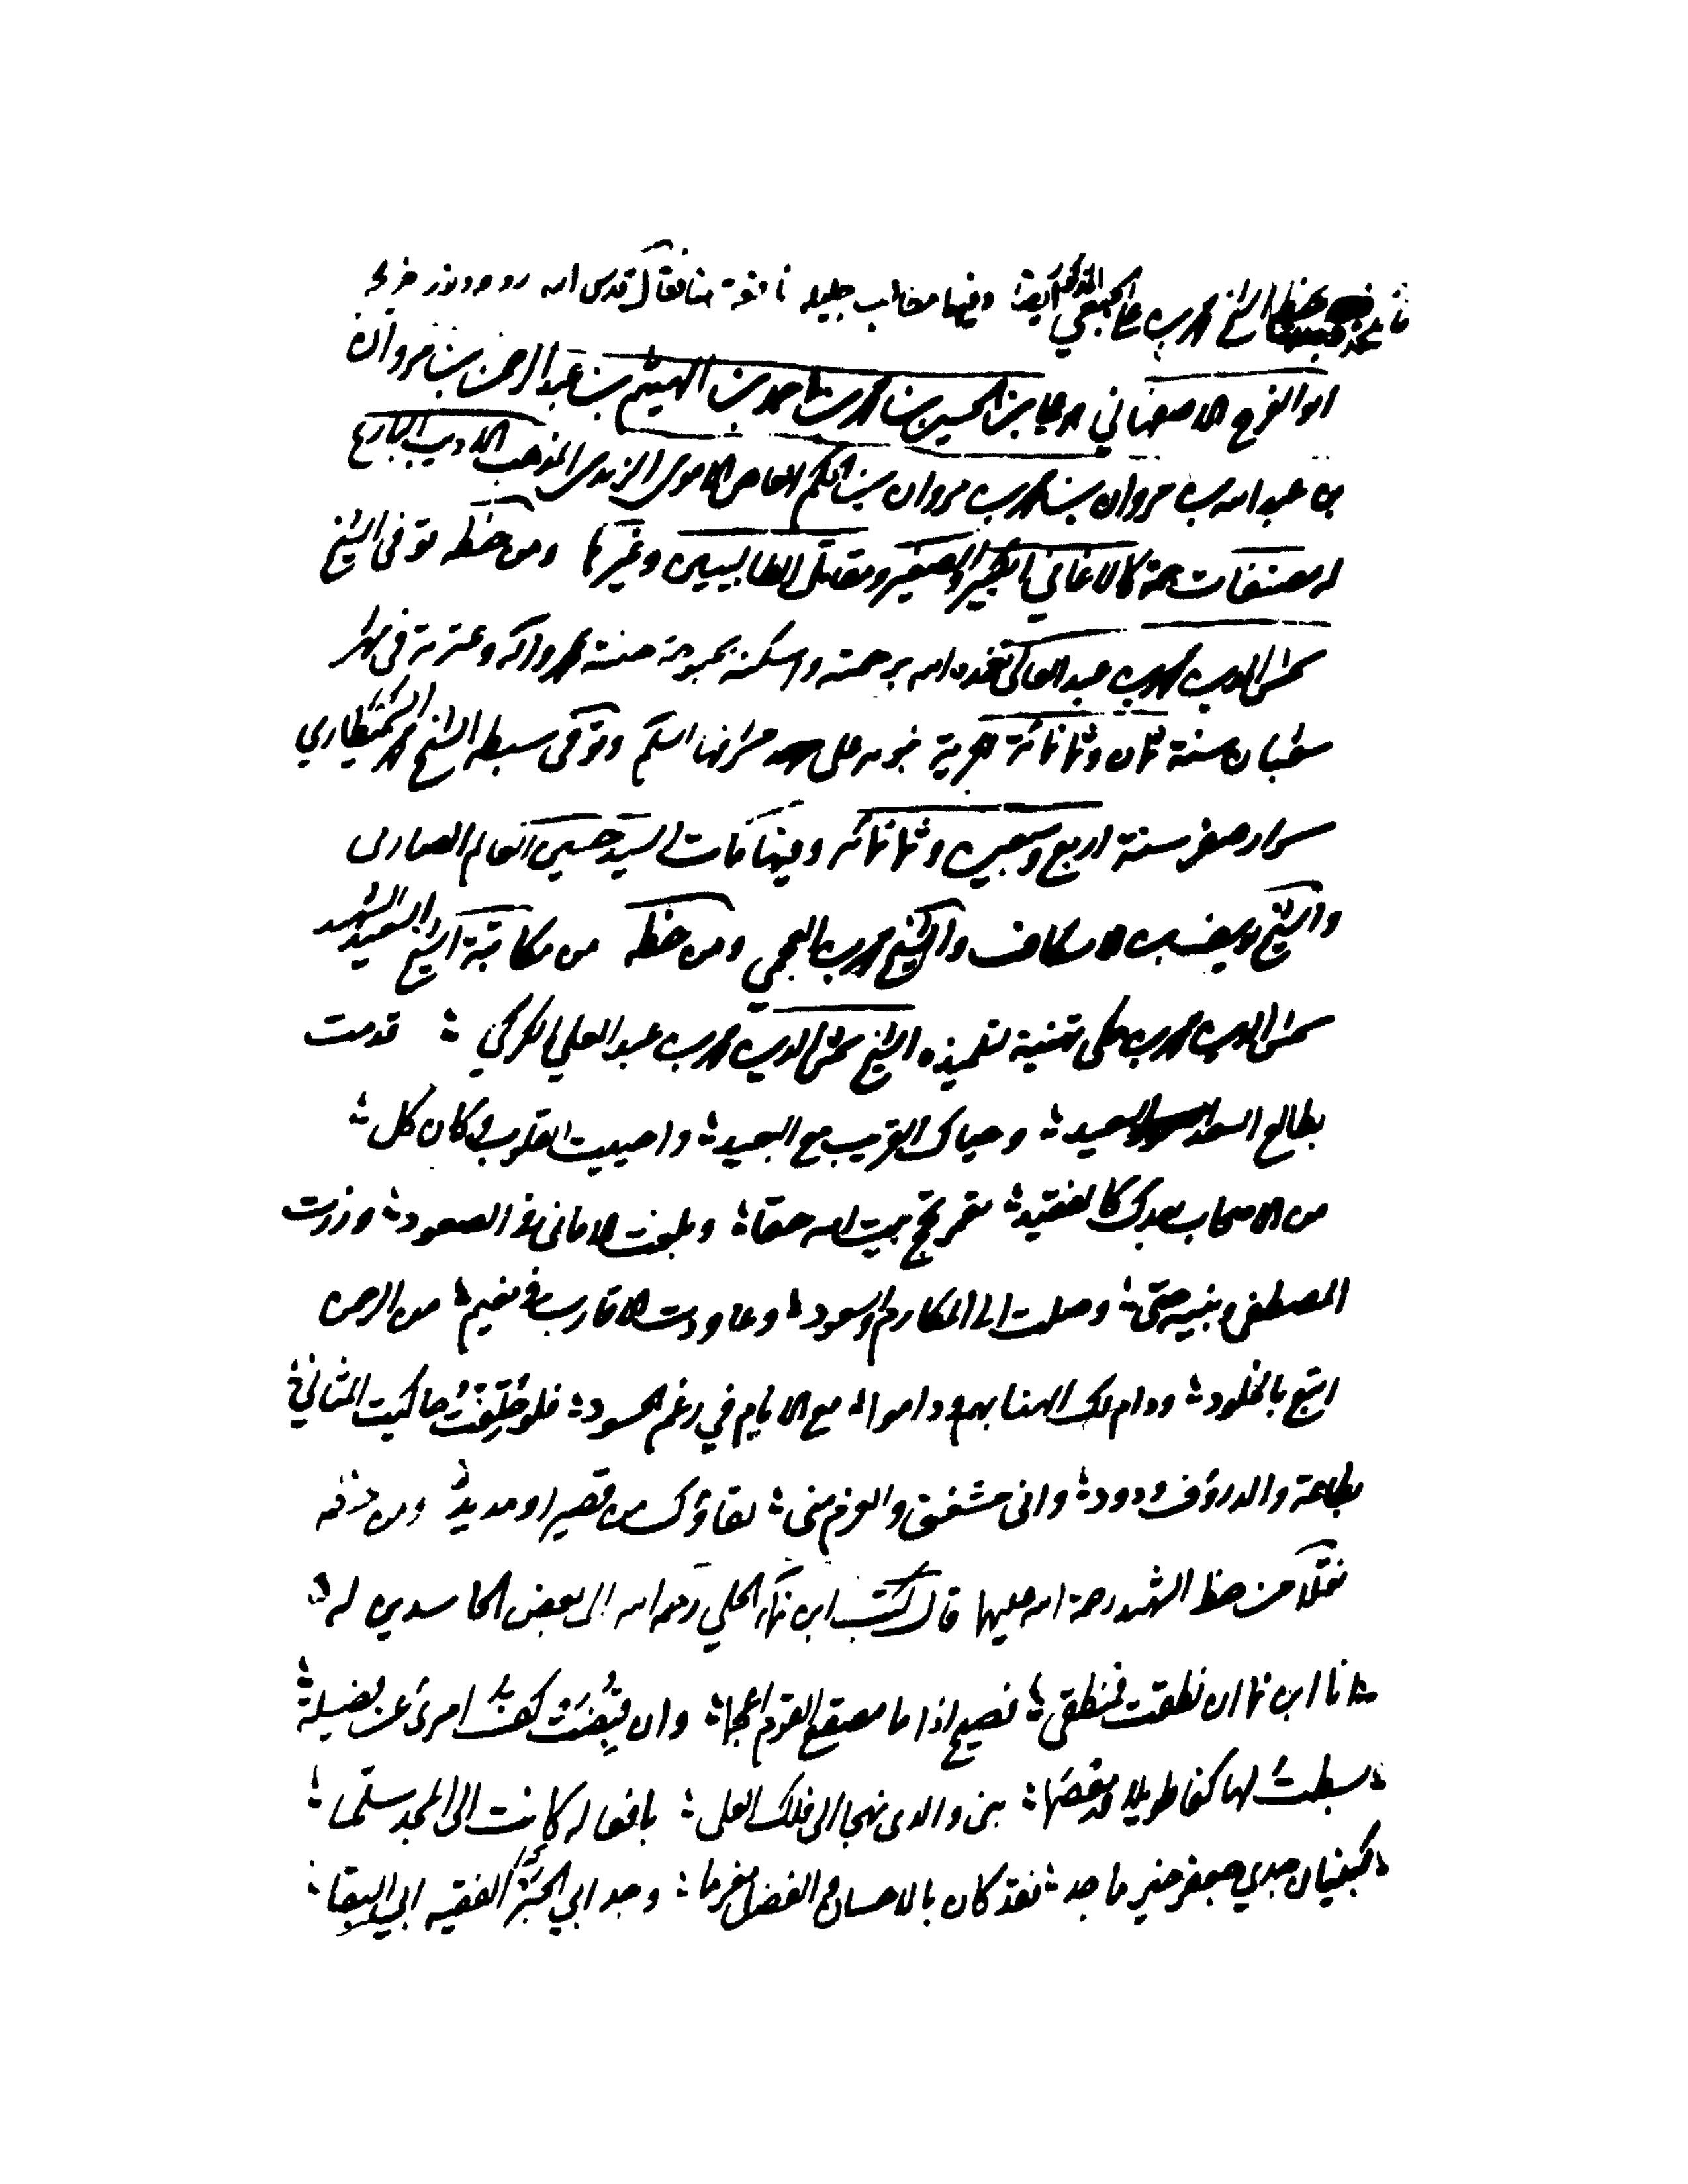 بخط الشيخ محمد بن علي الجبعي ايضا وفيها مطالب جليلة نافعة هنا فقال قدس الله روحه ونور ضريحه
ابو الفرج الاصفهاني هو علي بن الحسين بن محمد بن احمد بن الهيثم بن عبد الرحمن بن مروان
بن عبد الله بن مروان بن محمد بن مروان بن الحكم العاص الاموي الزيدي المذهب الاديب البارع
له مصنفات جمة كالاغاني الكبير والصغير ومقاتل الطالبيين وغيرها ومن خطه توفي الشيخ
شمس الدين محمد بن عبد العالي تغمده الله برحمته واسكنه بحبوحة جنته بمحمد وآله وعترته في نهار
شعبان سنة ثمان وثمانمائة هجرية نبويه على مشرفها السلم وتوفي سبطه الشيخ محمد
سرار صفر سنة اربع وسبعين وثمانمائة وفيها مات السيد حسين العالم الصماري
والشيخ يوسف بن الاسكاف والشيخ محمد بن العجمي ومن خطه من مكاتبة الشيخ السعيد الشهيد
شمس الدين محمد بن مكي تهنية لتلميذه الشيخ شمس الدين محمد بن عبد العلي الكركي قدمت
بطالع السعد السعيد وحياك القريب مع البعيد واحييت القلوب وكان كل
من الاصحاب بعدك كالفقيد نعم حج بيت الله حقا وبلغت الاماني في الصعود وزرت
المصطفى وبنيه حتى وصلت الى المكارم والسعود وعاودت الاقارب في نعيم من الرحمن
اتبع بالخلود ودام لك الهنا بهم وداموا مع الايام في رغم الحسود فلو خلقت حاكيت المثاني
بطاعة والد رؤف ودود واني مشفق والعزم مني لقاؤك من قصير او مديد ومن خطه
نقلا من خط الشهيد رحمة الله عليهما قال كتب ابن نما الحلي رحمه الله الى بعض الحاسدين له
انا ابن نما ان نطقت فمنطقي فصيح اذا ما مصقع القوم اعجما وان قبضت كف امرئ عن فضيلة
بسطت لها كفا طويلا ومعصما بنى والدي نهجا الى فلك العلى بافعاله كانت الى المجد سلما
كبنيان جدي جعفر خير ماجد فقد كان بالاحسان والفضل مغرما وجد ابي الحبر الفقيه ابي البقا